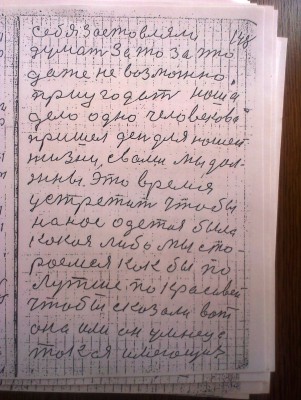 себя заставляли 148
думать за то за что
даже не возможно,
придгодать наша
дело одно человека
пришел ден для нашей
жизни, свами мы дол-
жны. Это время
устретить чтобы
на нас одетая была
какая либо мы ста
раемся как бы по
лутше по красивей
чтобы сказали вот
она или он умнеце
такая имеющих